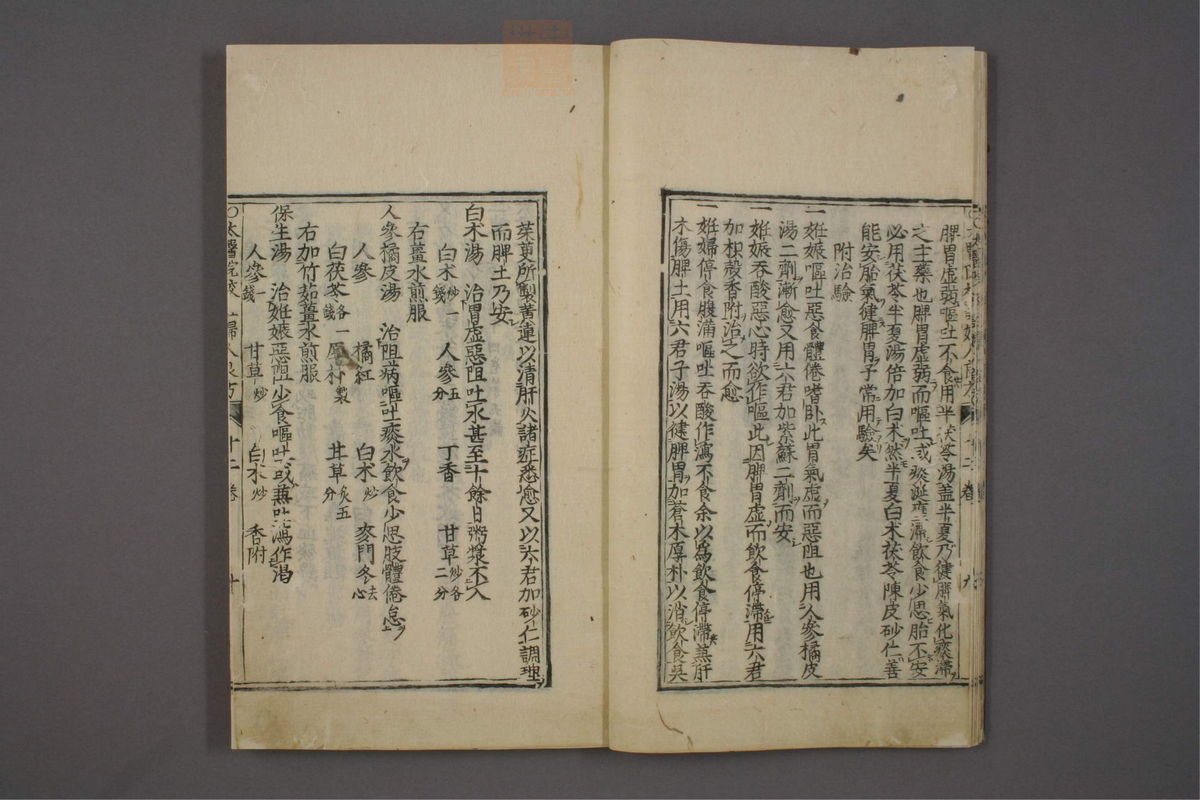 脾胃虛弱嘔吐不食用半茯苓湯盖半夏乃健脾氣化痰滯
之主藥也脾胃虛弱而嘔吐或痰涎壅滯飲食少思胎不安
必用茯苓半夏湯倍加白朮然半夏白朮茯苓陳皮砂仁善
能安胎氣健脾胃予常用驗矣
附治驗
一妊娠嘔吐惡食體倦嗜卧此胃氣虛而惡阻也用人參橘皮
湯二劑漸愈又用六君加紫蘇二劑而安
一妊娠吞酸惡心時欲作嘔此因脾胃虛而飲食停滯用六君
加枳殻香附治之而愈
一妊婦停食腹滿嘔吐吞酸作瀉不食余以爲飲食停滯兼肝
木傷脾土用六君子湯以健脾胃加蒼朮厚朴以消飲食吳
茱萸所製黄連以清肝火諸症悉愈又以六君加砂仁調理
而脾土乃安
白朮湯 治胃虛惡阻吐水甚至十餘日粥漿不入
白朮炒一錢 人參五分 丁香 甘草炒各二分
右薑水煎服
人參橘皮湯 治阻病嘔吐痰水飲食少思肢體倦怠
人參 橘紅 白朮炒 麥門冬去心
白茯苓各一錢 厚朴製 甘草炙五分
右加竹茹薑水煎服
保生湯 治妊娠惡阻少食嘔吐或兼吐瀉作渴
人參一錢 甘草炒 白朮炒 香附
○太醫院校 婦人良方 十二卷 十